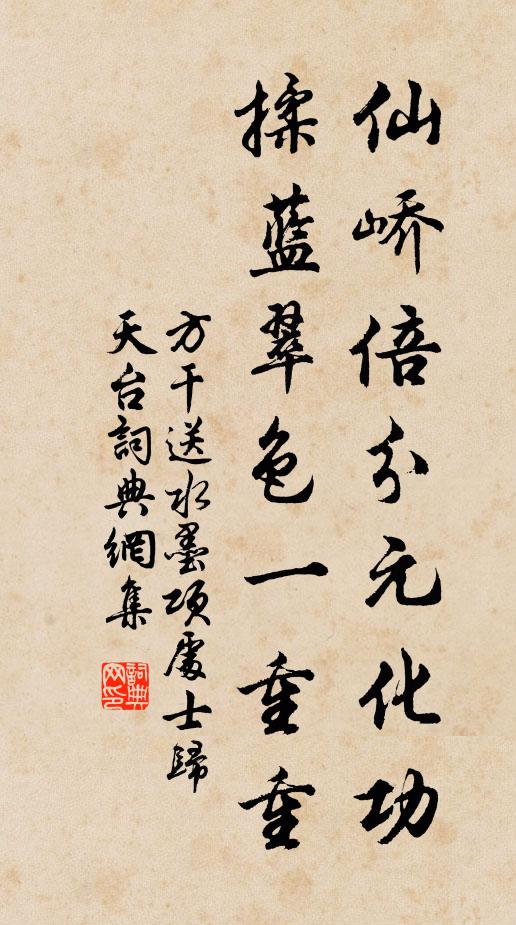 仙嶠倍分元化功
揉藍翠色一重重
方干送水墨項處士歸
天台詞典網集
詞典網印